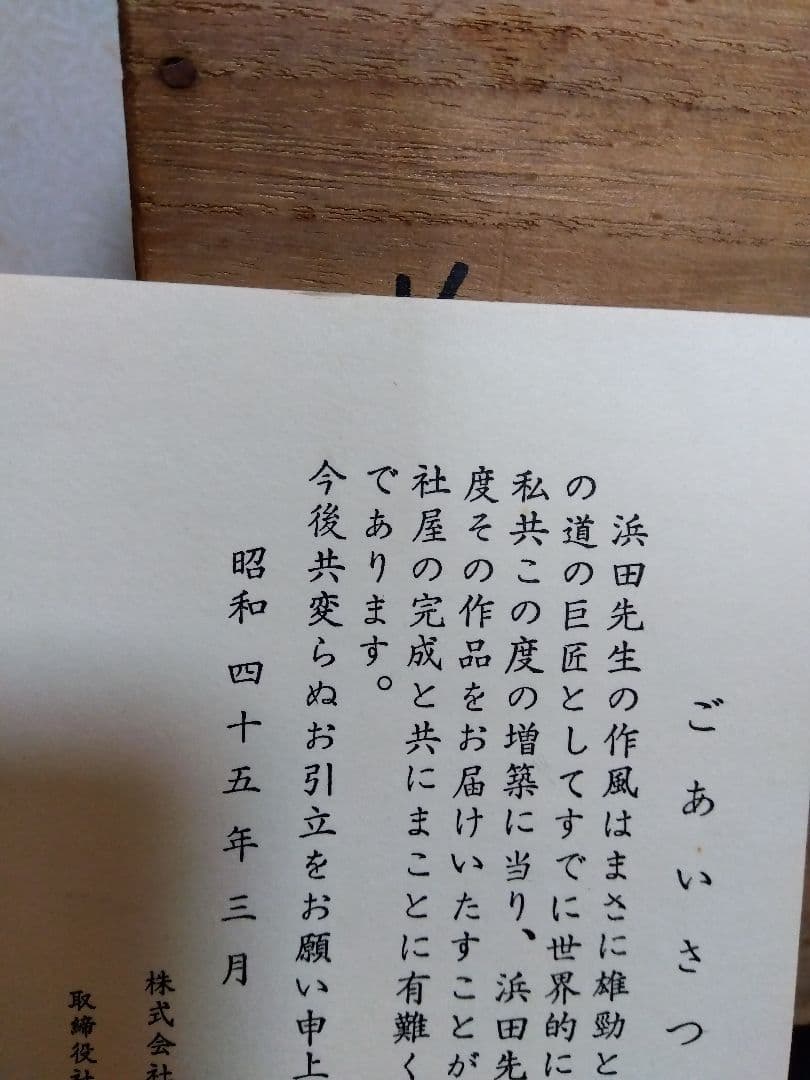 ごあいさつ
浜田先生の作風はまさに雄勁と
の道の巨匠としてすでに世界的に
私共この度の増築に当り、浜田先
度その作品をお届けいたすことが
社屋の完成と共にまことに有難く
であります。
今後共変らぬお引立をお願い申上
昭和四十五年三月
株式会社
取締役社